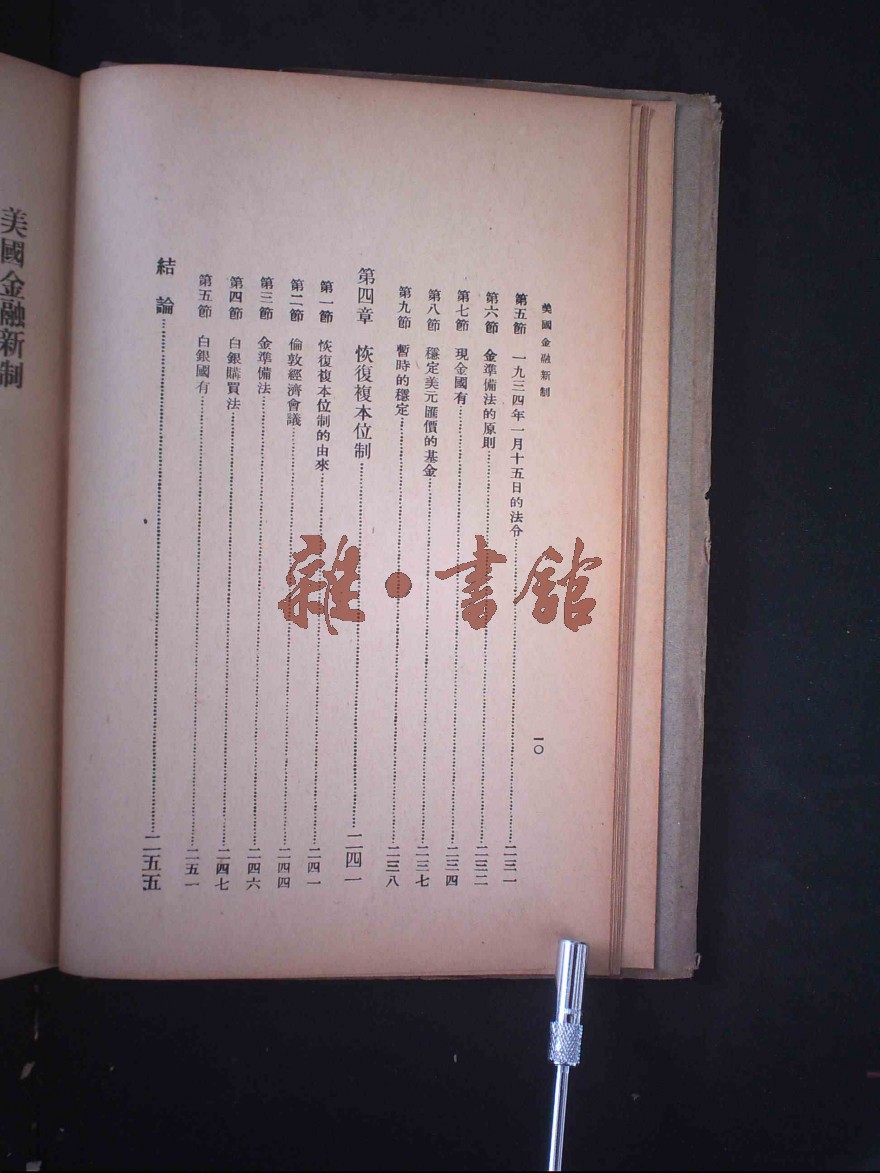 美國金融新制
一〇
第五節　一九三四年一月十五日的法令……二三一
第六節　金準備法的原則……二三二
第七節　現金國有……二三四
第八節　穩定美元匯價的基金……二三七
第九節　暫時的穩定……二三八
第四章　恢復複本位制……二四一
第一節　恢復複本位制的由來……二四一
第二節　倫敦經濟會議……二四四
第三節　金準備法……二四六
第四節　白銀購買法……二四七
第五節　白銀國有……二五一
結論……二五五
美國金融新制
雜·書館